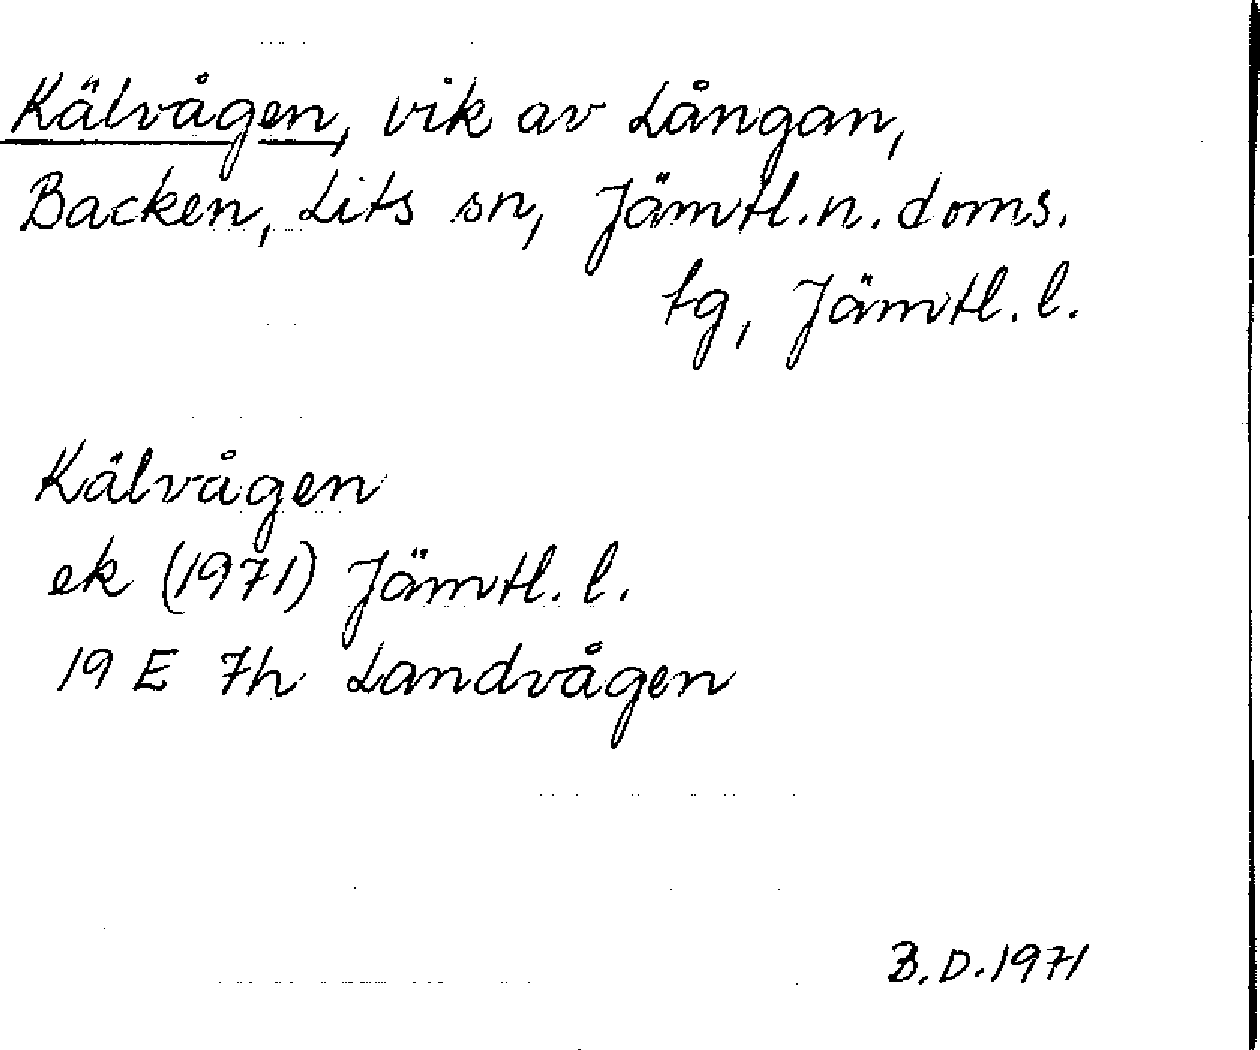 Kälvågen, vik av Långan,
Backen, Lits sn, Jämtl.n.doms.
tg, Jämtl.l.
Kälvågen
ek (1971) Jämtl.l.
19 E 7h Landvågen
B.D.1971